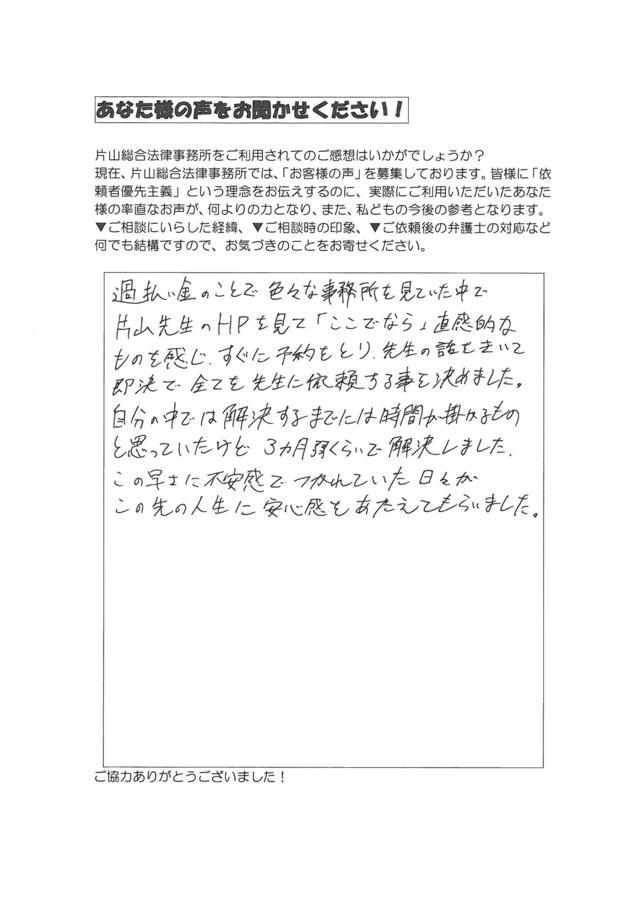 あなた様の声をお聞かせください！
片山総合法律事務所をご利用されてのご感想はいかがでしょうか？
現在、片山総合法律事務所では、「お客様の声」を募集しております。皆様に「依
頼者優先主義」という理念をお伝えするのに、実際にご利用いただいたあなた
様の率直なお声が、何よりの力となり、また、私どもの今後の参考となります。
▼ご相談にいらした経緯、▼ご相談時の印象、▼ご依頼後の弁護士の対応など
何でも結構ですので、お気づきのことをお寄せください。
過払い金のことで 色々な事務所を見ていた中で
片山先生のHPを見て「ここでなら」直感的な
ものを感じ、すぐに予約をとり、先生の話をきいて
即決で全てを先生に依頼する事を決めました。
自分の中では解決するまでには時間が掛かるもの
と思っていたけど 3カ月弱くらいで解決しました。
この早さに不安感でつかれていた日々が
この先の人生に安心感をあたえてもらいました。
ご協力ありがとうございました！